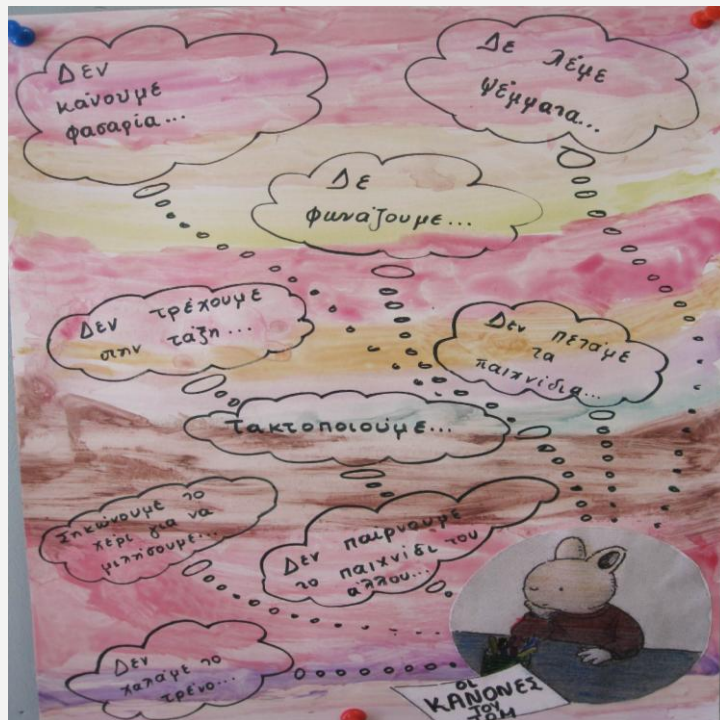 Δεν
κάνουμε
φασαρία...
Δε λέμε
ψέμματα...
Δε
φωνάζουμε...
Δεν τρέχουμε
στην τάξη...
Δεν πετάμε
τα
παιχνίδια...
Τακτοποιούμε...
Σηκώνουμε το
χέρι για να
μιλήσουμε...
Δεν παίρνουμε
το παιχνίδι του
άλλου...
Δεν
χαλάμε το
τρένο...
ΟΙ
ΚΑΝΟΝΕΣ
ΤΟΥ
ΤΟΜ